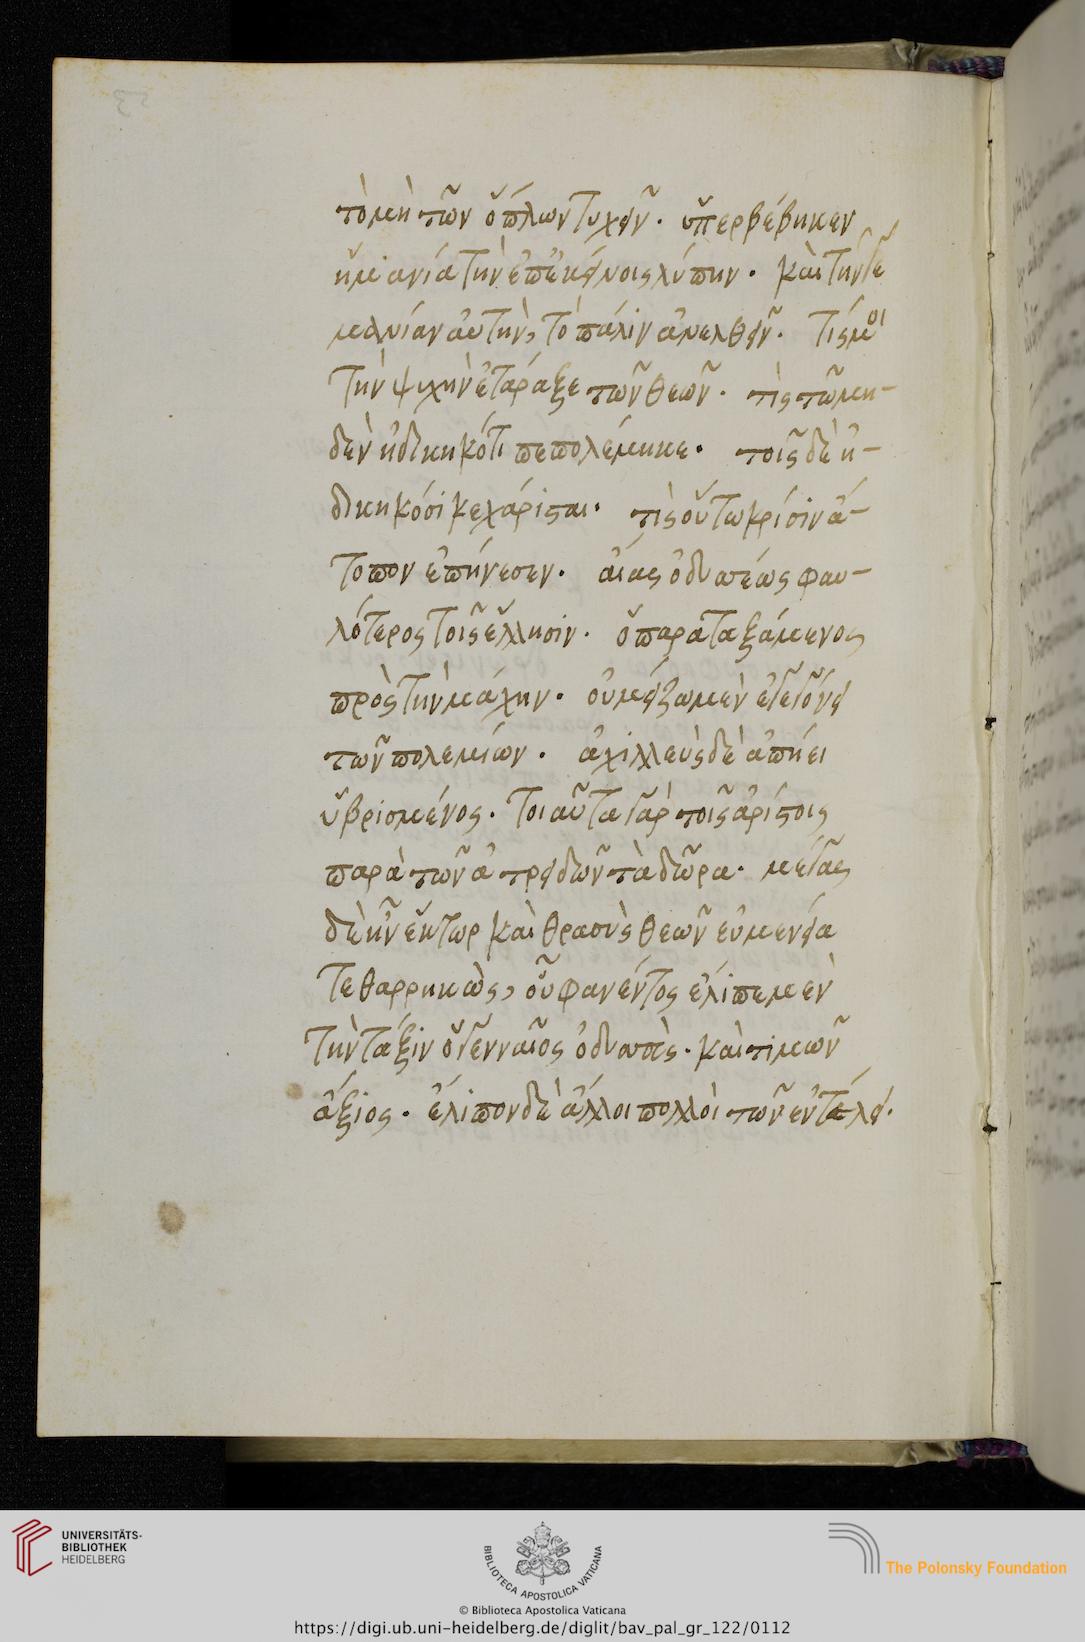 53
τὸ μὴ τῶν ὅπλων τυχεῖν. ὑπερβέβηκεν
ἡ μανία τὴν ἐπ' ἐκείνοις λύπην. καὶ τὴν γε
μανίαν αὐτὴν, τὸ πάλιν ἀνελθεῖν. τίς μοι
τὴν ψυχὴν ἐτάραξε τῶν θεῶν. τίς τῶ μη-
δὲν ἠδικηκότι πεπολέμηκε. τοῖς δὲ ἠ-
δικηκόσι κεχάρισται. τίς οὕτω κρίσιν ἄ-
τοπον ἐπῄνεσεν. αἴας ὀδυσσέως φαυ-
λότερος τοῖς ἕλλησιν. ὁ παραταξάμενος
πρὸς τὴν μάχην. οὗ μείζω μὲν ἐγεγόνει
τῶν πολεμίων. ἀχιλλεὺς δὲ ἀπήει
ὑβρισμένος. τοιαῦτα γὰρ τοῖς ἀρίστοις
παρὰ τῶν ἀτρειδῶν τὰ δῶρα. μέγας
δὲ ἦν ἕκτωρ καὶ θρασὺς θεῶν εὐμενεία
τεθαρρηκὼς, οὗ φανέντος ἔλιπε μὲν
τὴν τάξιν ὁ γενναῖος ὀδυσσεὺς. καὶ τιμῶν
ἄξιος. ἔλιπον δὲ ἄλλοι πολλοὶ τῶν ἐν τέλει.
UNIVERSITÄTS-
BIBLIOTHEK
HEIDELBERG
BIBLIOTECA APOSTOLICA VATICANA
The Polonsky Foundation
© Biblioteca Apostolica Vaticana
https://digi.ub.uni-heidelberg.de/diglit/bav_pal_gr_122/0112